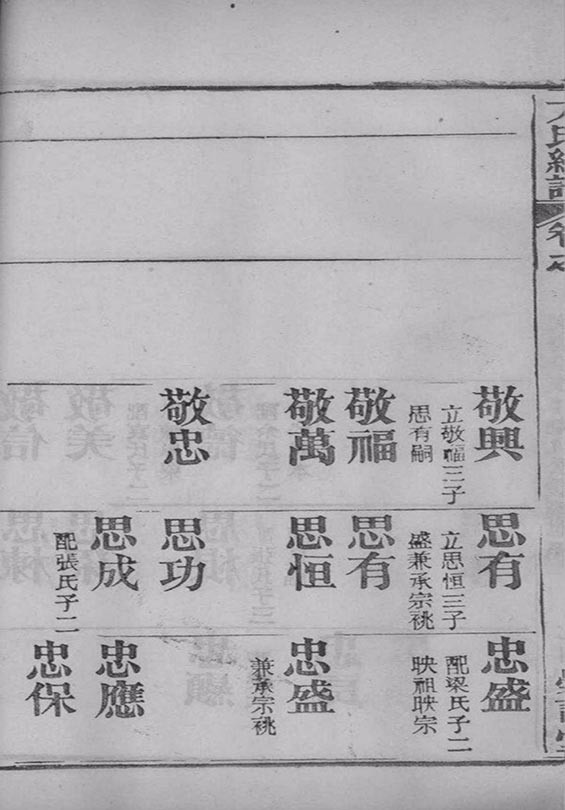 敬興
立敬福三子
思有嗣
敬福
敬萬
敬忠
思有
立思恒三子
盛兼承宗祧
思有
思恒
思功
思成
配張氏子二
忠盛
配梁氏子二
映祖映宗
忠盛
兼承宗祧
忠應
忠保